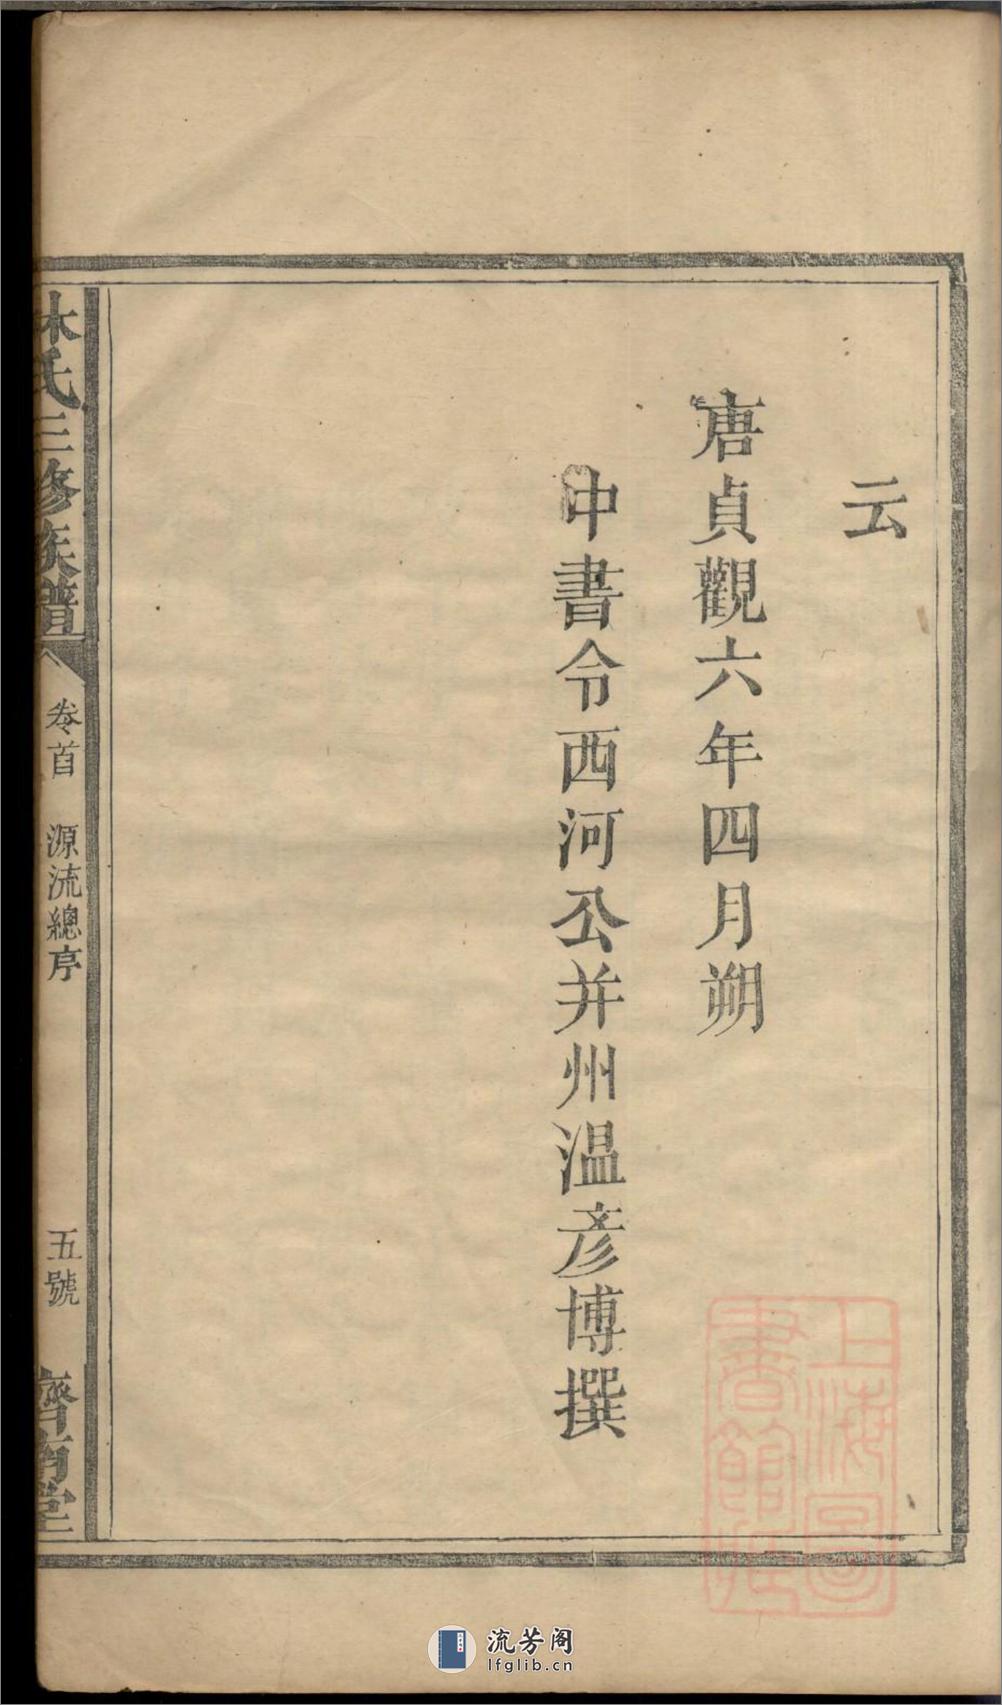 云
唐貞觀六年四月朔
中書令西河公并州溫彥博撰
林氏三修族譜
卷首 源流總序
五號
濟南堂
上海圖
書館藏
流芳阁
lfglib.cn